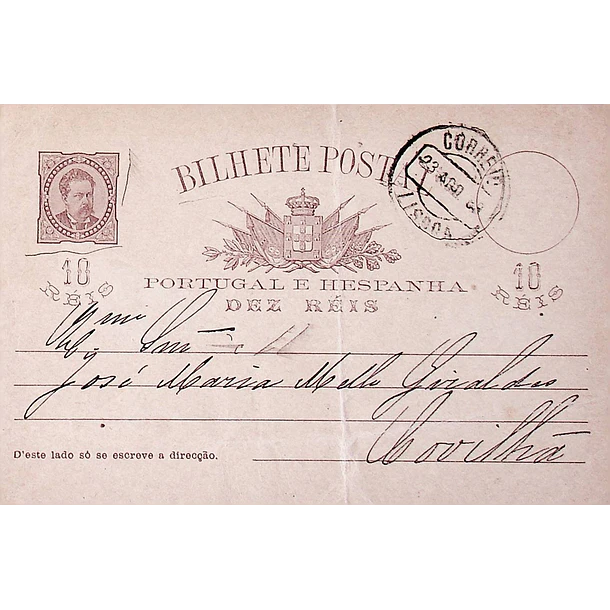 BILHETE POSTAL
CORREIO
23 AGO
LISBOA
PORTUGAL E HESPANHA
10 RÉIS
DEZ RÉIS
10 RÉIS
José Maria Mello Giraldes
Covilhã
D'este lado só se escreve a direcção.